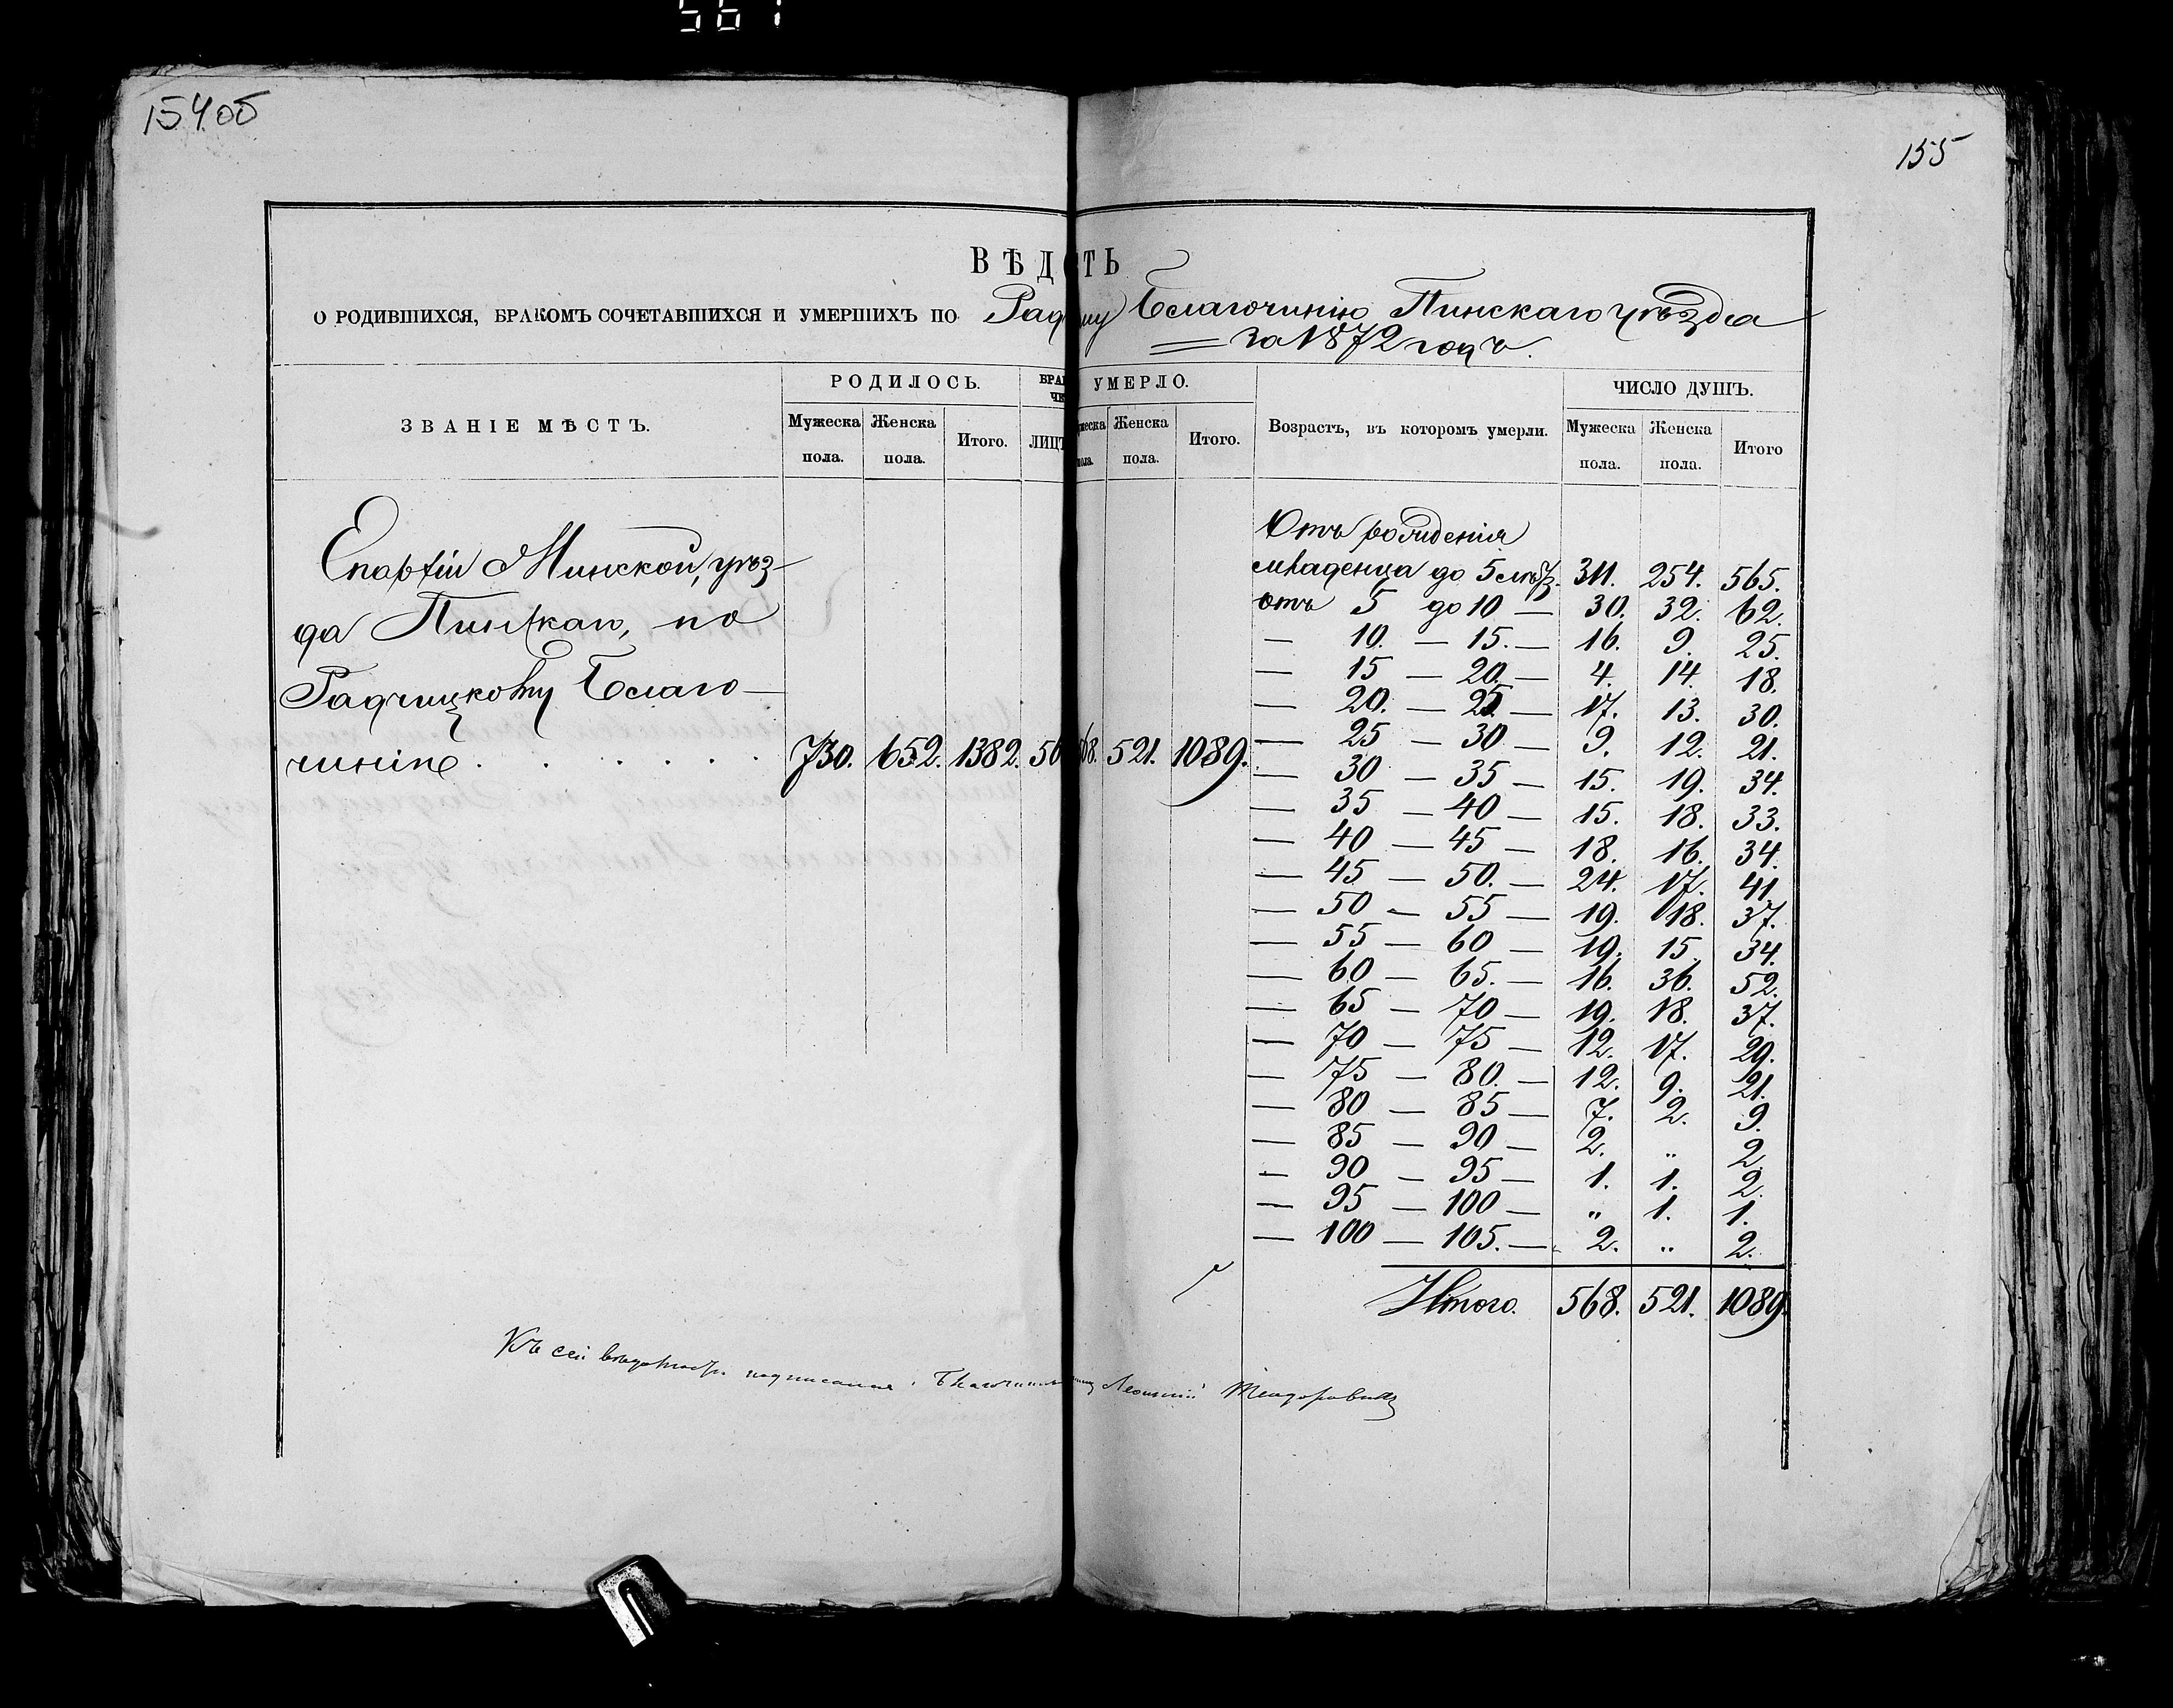 561
154об
155
ВѢДО СТЬ
О РОДИВШИХСЯ, БРАКОМЪ СОЧЕТАВШИХСЯ И УМЕРШИХЪ ПО Благочинію Пинскаго уѣзда
за 1872 годъ.
ЗВАНІЕ МѢСТЪ. РОДИЛОСЬ. УМЕРЛО. Возрастъ, въ которомъ умерли. ЧИСЛО ДУШЪ.
Мужеска пола. Женска пола. Итого. Женска пола. Итого. Мужеска пола. Женска пола. Итого
Епархіи Минской, уѣз-
да Пинскаго, по
Радчицкому Благо-
чинію . . . . . . 730. 652. 1382. 568. 521. 1089.
Отъ рожденія
младенца до 5 лѣтъ. 311. 254. 565.
отъ 5 до 10 — 30. 32. 62.
— 10. — 15. — 16. 9. 25.
— 15 — 20. — 4. 14. 18.
— 20. — 25. — 17. 13. 30.
— 25 — 30 — 9. 12. 21.
— 30 — 35 — 15. 19. 34.
— 35 — 40 — 15. 18. 33.
— 40 — 45 — 18. 16. 34.
— 45 — 50. — 24. 17. 41
— 50 — 55 — 19. 18. 37.
— 55 — 60 — 19. 15. 34.
— 60 — 65. — 16. 36. 52.
— 65 — 70 — 19. 18. 37.
— 70 — 75 — 12. 17. 29.
— 75 — 80. — 12. 9. 21.
— 80 — 85 — 7. 2. 9.
— 85 — 90 — 2. „ 2.
— 90 — 95 — 1. 1. 2.
— 95 — 100 — „ 1. 1.
— 100 — 105. — 2. „ 2.
Итого. 568. 521. 1089.
Къ сей вѣдомости подписался: Теодоровичъ